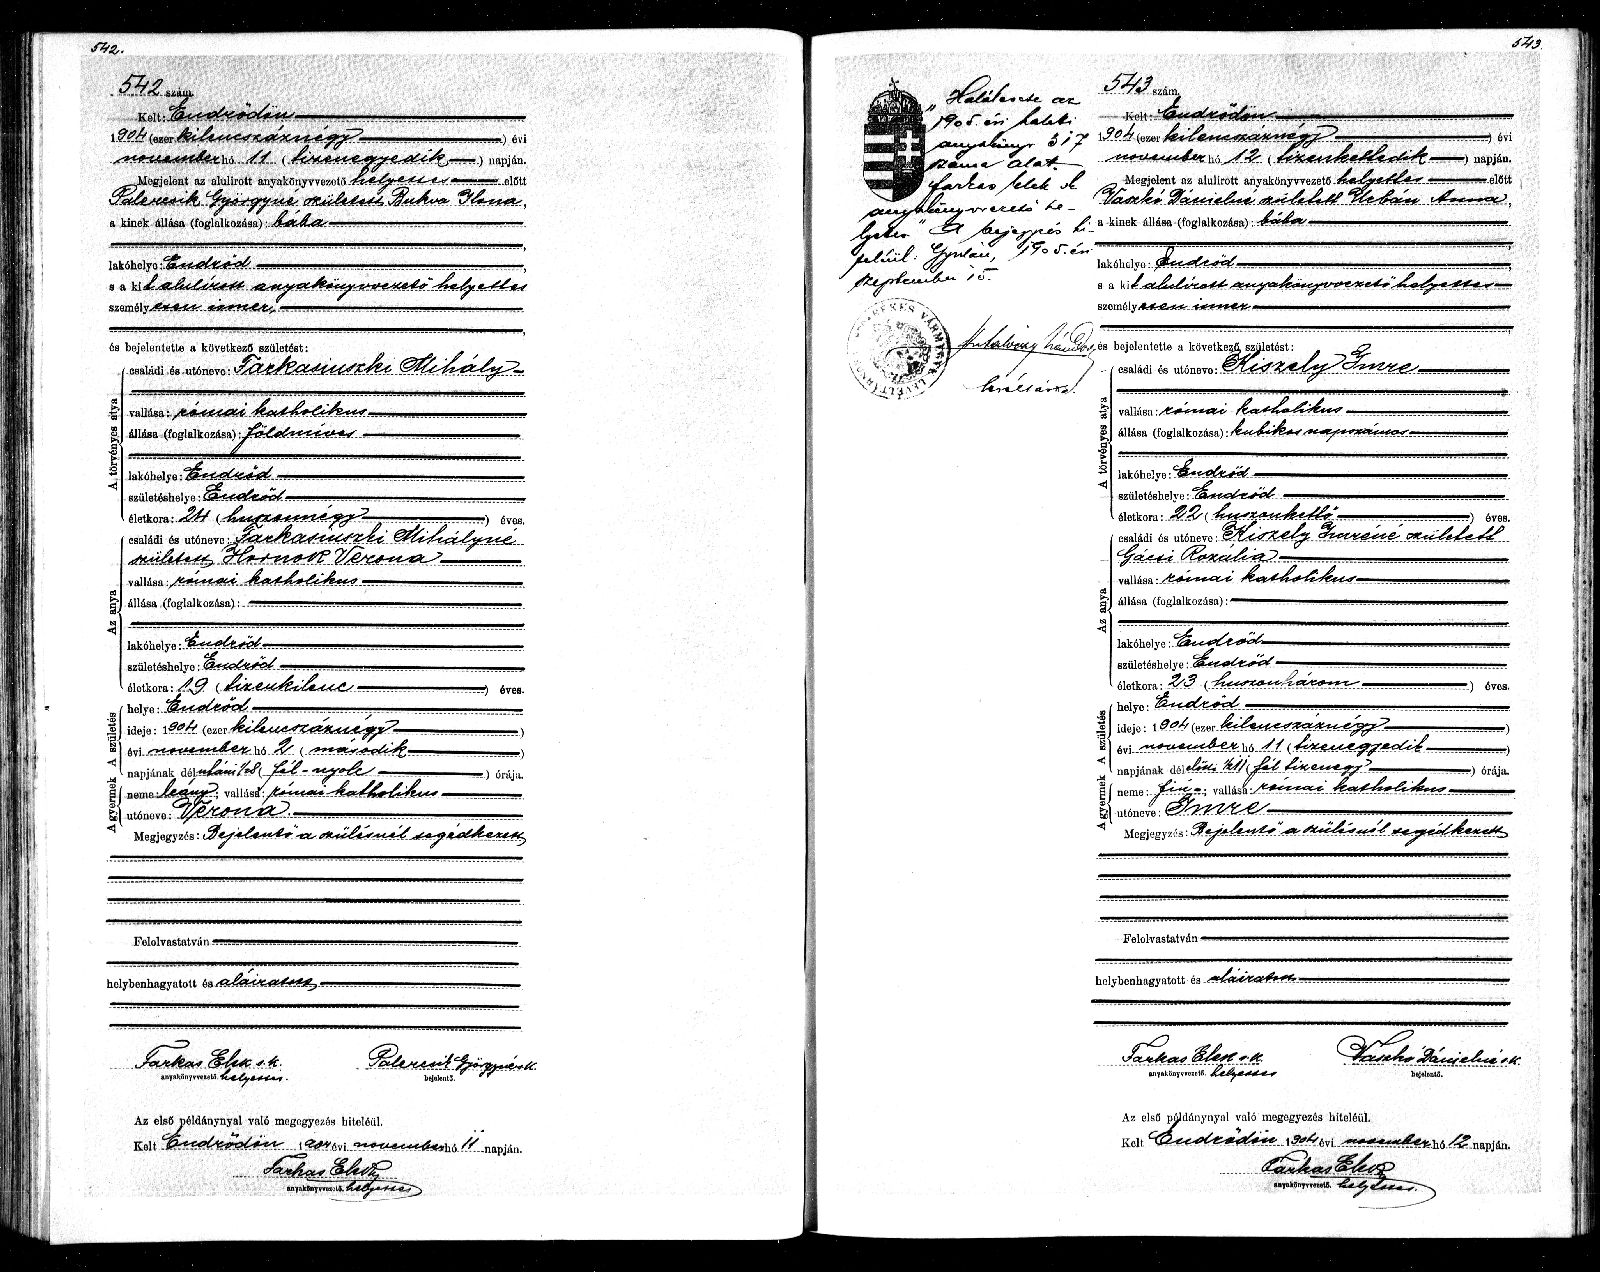 542.
542 szám.
Kelt: Endrődön
1904 (ezer kilencszáznégy) évi
november hó 11 (tizenegyedik) napján.
Megjelent az alulirott anyakönyvvezető helyettes előtt
Palercsik Györgyné született Bukva Ilona,
a kinek állása (foglalkozása): bába
lakóhelye: Endrőd
s a kit alulírott anyakönyvvezető helyettes
személyesen ismer,
és bejelentette a következő születést:
A törvényes atya
családi és utóneve: Farkasinszki Mihály
vallása: római katholikus
állása (foglalkozása): földmives
lakóhelye: Endrőd
születéshelye: Endrőd
életkora: 24 (huszonnégy) éves.
Az anya
családi és utóneve: Farkasinszki Mihályné
született Hornok Verona
vallása: római katholikus
állása (foglalkozása):
lakóhelye: Endrőd
születéshelye: Endrőd
életkora: 19 (tizenkilenc) éves.
A születés
helye: Endrőd
ideje: 1904 (ezer kilencszáznégy)
évi november hó 2 (második)
napjának délutáni 1/28 (fél-nyolc) órája.
A gyermek
neme: leány; vallása: római katholikus
utóneve: Verona
Megjegyzés: Bejelentő a szülésnél segédkezett
Felolvastatván
helybenhagyatott és aláiratott
Farkas Elek s.k.
anyakönyvvezető. helyettes.
Palercsik Györgyné s.k.
bejelentő.
Az első példánynyal való megegyezés hiteléül.
Kelt Endrődön 1904 évi november hó 11 napján.
Farkas Elek
anyakönyvvezető. helyettes
543.
„Halálesete az
1905. évi halotti
anyakönyv 317
száma alatt.
Farkas Elek s.k.
anyakönyvvezető he-
lyettes" A bejegyzés hi-
teléül. Gyulán, 1905. évi
szeptember 15.
BÉKÉS VÁRMEGYE LEVÉLTÁRA
levéltárnok
543 szám.
Kelt: Endrődön
1904 (ezer kilencszáznégy) évi
november hó 12 (tizenkettedik) napján.
Megjelent az alulirott anyakönyvvezető helyettes előtt
Vaszkó Dánielné született Urbán Anna,
a kinek állása (foglalkozása): bába
lakóhelye: Endrőd
s a kit alulírott anyakönyvvezető helyettes
személyesen ismer
és bejelentette a következő születést:
A törvényes atya
családi és utóneve: Kiszely Imre
vallása: római katholikus
állása (foglalkozása): kubikos napszámos
lakóhelye: Endrőd
születéshelye: Endrőd
életkora: 22 (huszonkettő) éves.
Az anya
családi és utóneve: Kiszely Imréné született
Gácsi Rozália
vallása: római katholikus
állása (foglalkozása):
lakóhelye: Endrőd
születéshelye: Endrőd
életkora: 23 (huszonhárom) éves.
A születés
helye: Endrőd
ideje: 1904 (ezer kilencszáznégy)
évi november hó 11 (tizenegyedik)
napjának délelőtti 1/211 (fél tizenegy) órája.
A gyermek
neme: fiu; vallása: római katholikus
utóneve: Imre
Megjegyzés: Bejelentő a szülésnél segédkezett
Felolvastatván
helybenhagyatott és aláiratott
Farkas Elek s.k.
anyakönyvvezető. helyettes
Vaszkó Dánielné s.k.
bejelentő.
Az első példánynyal való megegyezés hiteléül.
Kelt Endrődön 1904 évi november hó 12 napján.
Farkas Elek
anyakönyvvezető. helyettes.